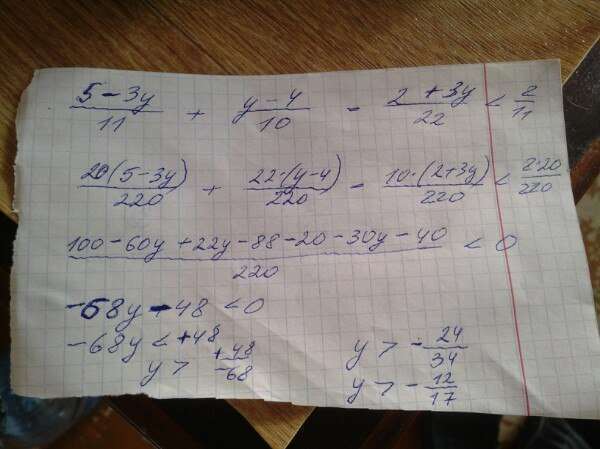 (5-3y)/11 + (y-4)/10 - (2+3y)/22 < 2/11
20(5-3y)/220 + 22·(y-4)/220 - 10·(2+3y)/220 < 2·20/220
(100-60y+22y-88-20-30y-40)/220 < 0
-68y-48 < 0
-68y < +48
y > +48/-68
y > -24/34
y > -12/17